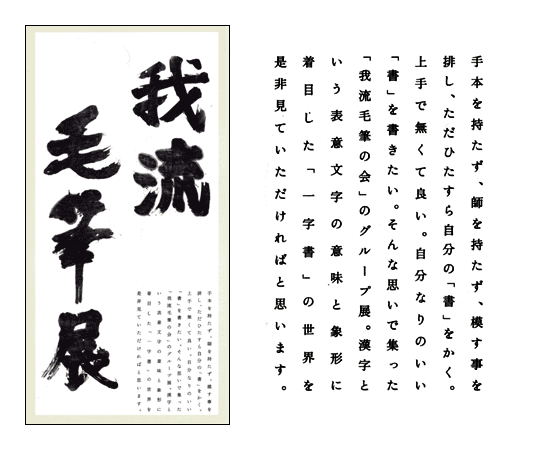 我流
毛筆展
手本を持たず、師を持たず、模す事を
排し、ただひたすら自分の「書」をかく。
上手で無くて良い。自分なりのいい
「書」を書きたい。そんな思いで集った
「我流毛筆の会」のグループ展。漢字と
いう表意文字の意味と象形に
着目した「一字書」の世界を
是非見ていただければと思います。
手本を持たず、師を持たず、模す事を
排し、ただひたすら自分の「書」をかく。
上手で無くて良い。自分なりのいい
「書」を書きたい。そんな思いで集った
「我流毛筆の会」のグループ展。漢字と
いう表意文字の意味と象形に
着目した「一字書」の世界を
是非見ていただければと思います。